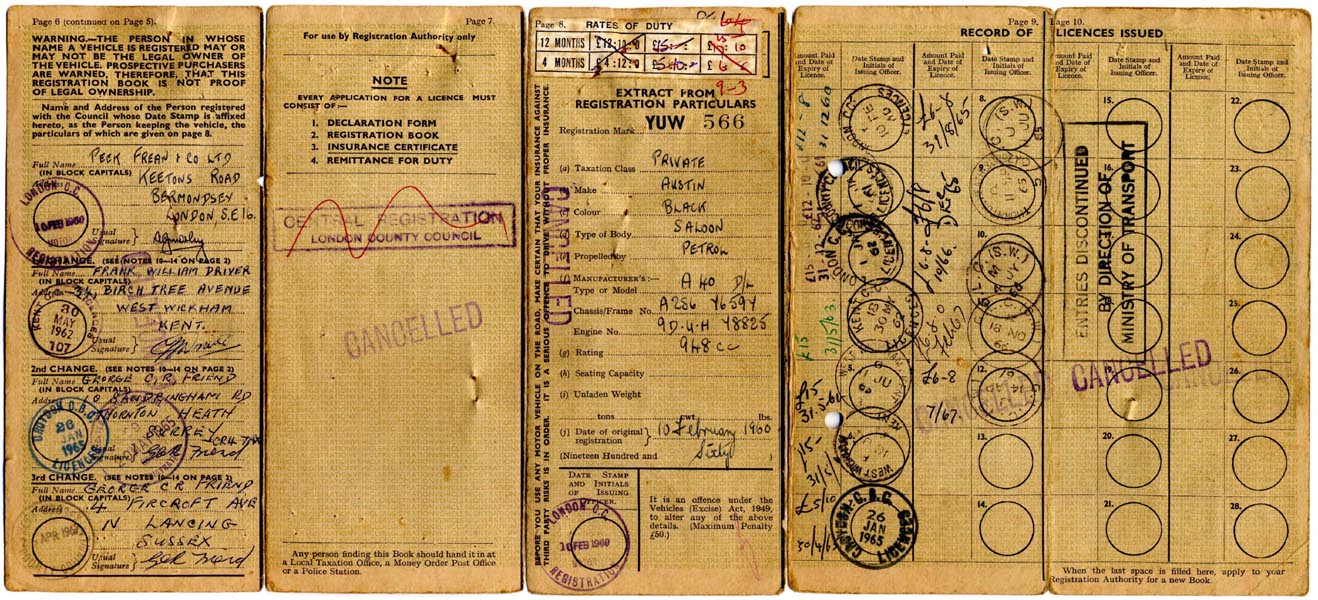 Page 6 (continued on Page 5).
WARNING.—THE PERSON IN WHOSE
NAME A VEHICLE IS REGISTERED MAY OR
MAY NOT BE THE LEGAL OWNER OF
THE VEHICLE. PROSPECTIVE PURCHASERS
ARE WARNED, THEREFORE, THAT THIS
REGISTRATION BOOK IS NOT PROOF
OF LEGAL OWNERSHIP.
Name and Address of the Person registered
with the Council whose Date Stamp is affixed
hereto, as the Person keeping the vehicle, the
particulars of which are given on page 8.
Full Name PEEK FREAN & CO LTD
(IN BLOCK CAPITALS)
KEETONS ROAD
BERMONDSEY
LONDON, S.E 16.
LONDON C.C.
10 FEB 1960
REGISTRATION
Usual
Signature
CHANGE. (SEE NOTES 10—14 ON PAGE 2)
Full Name FRANK WILLIAM DRIVER
(IN BLOCK CAPITALS)
Address 34 BIRCH TREE AVENUE
WEST WICKHAM
KENT.
30
MAY
1962
107
Usual
Signature
2ND CHANGE. (SEE NOTES 10—14 ON PAGE 2)
Full Name GEORGE C.R. FRIEND
(IN BLOCK CAPITALS)
Address 10 SANDRINGHAM RD
THORNTON HEATH
SURREY
CR4 7
CROYDON C.B.C.
26
JAN
1965
LICENCES
Usual
Signature
3RD CHANGE. (SEE NOTES 10—14 ON PAGE 2)
Full Name GEORGE C R FRIEND
(IN BLOCK CAPITALS)
Address 4 PIRCROFT AVE
N LANCING
SUSSEX
APR 196
Usual
Signature
Page 7.
For use by Registration Authority only
NOTE
EVERY APPLICATION FOR A LICENCE MUST
CONSIST OF:—
1. DECLARATION FORM
2. REGISTRATION BOOK
3. INSURANCE CERTIFICATE
4. REMITTANCE FOR DUTY
CENTRAL REGISTRATION
LONDON COUNTY COUNCIL
CANCELLED
Any person finding this Book should hand it in at
a Local Taxation Office, a Money Order Post Office
or a Police Station.
Page 8.
RATES OF DUTY
12 MONTHS £12:10:0 £15:-:
4 MONTHS £4:12:0 £5-10:-
9-3
EXTRACT FROM
REGISTRATION PARTICULARS
Registration Mark YUW 566
(a) Taxation Class PRIVATE
Make AUSTIN
Colour BLACK
Type of Body SALOON
Propelled by PETROL
MANUFACTURER'S:—
Type or Model A 40 D/L
Chassis/Frame No. A2S6 46594
Engine No. 9D.U.H 48825
(g) Rating 948 cc
(h) Seating Capacity
(i) Unladen Weight
tons cwt. lbs.
(j) Date of original
registration 10 February 1960
(Nineteen Hundred and Sixty )
DATE STAMP
AND INITIALS
OF ISSUING
OFFICER.
LONDON C.C.
10 FEB 1960
REGISTRATION
It is an offence under the
Vehicles (Excise) Act, 1949,
to alter any of the above
details. (Maximum Penalty
£50.)
BEFORE YOU USE ANY MOTOR VEHICLE ON THE ROAD, MAKE CERTAIN THAT YOUR INSURANCE AGAINST
THIRD PARTY RISKS IS IN ORDER. IT IS A SERIOUS OFFENCE TO DRIVE WITHOUT PROPER INSURANCE.
CANCELLED
Page 9.
Page 10.
RECORD OF LICENCES ISSUED.
Amount Paid
and Date of
Expiry of
Licence.
Date Stamp and
Initials of
Issuing Officer.
Amount Paid
and Date of
Expiry of
Licence.
Date Stamp and
Initials of
Issuing Officer.
Amount Paid
and Date of
Expiry of
Licence.
Date Stamp and
Initials of
Issuing Officer.
Amount Paid
and Date of
Expiry of
Licence.
Date Stamp and
Initials of
Issuing Officer.
£6-8
31/8/65
£6-8
DEC 65
£6-8-0
£6-8
7/67.
£15
31/5/63
£15
£5/10
30/4/65
CROYDON C.B.C.
26
JAN
1965
LICENCES
8.
9.
10.
13.
14.
15.
16.
19.
20.
21.
22.
23.
24.
25.
26.
27.
28.
ENTRIES DISCONTINUED
BY DIRECTION OF
MINISTRY OF TRANSPORT
CANCELLED
CANCELLED
When the last space is filled here, apply to your
Registration Authority for a new Book.